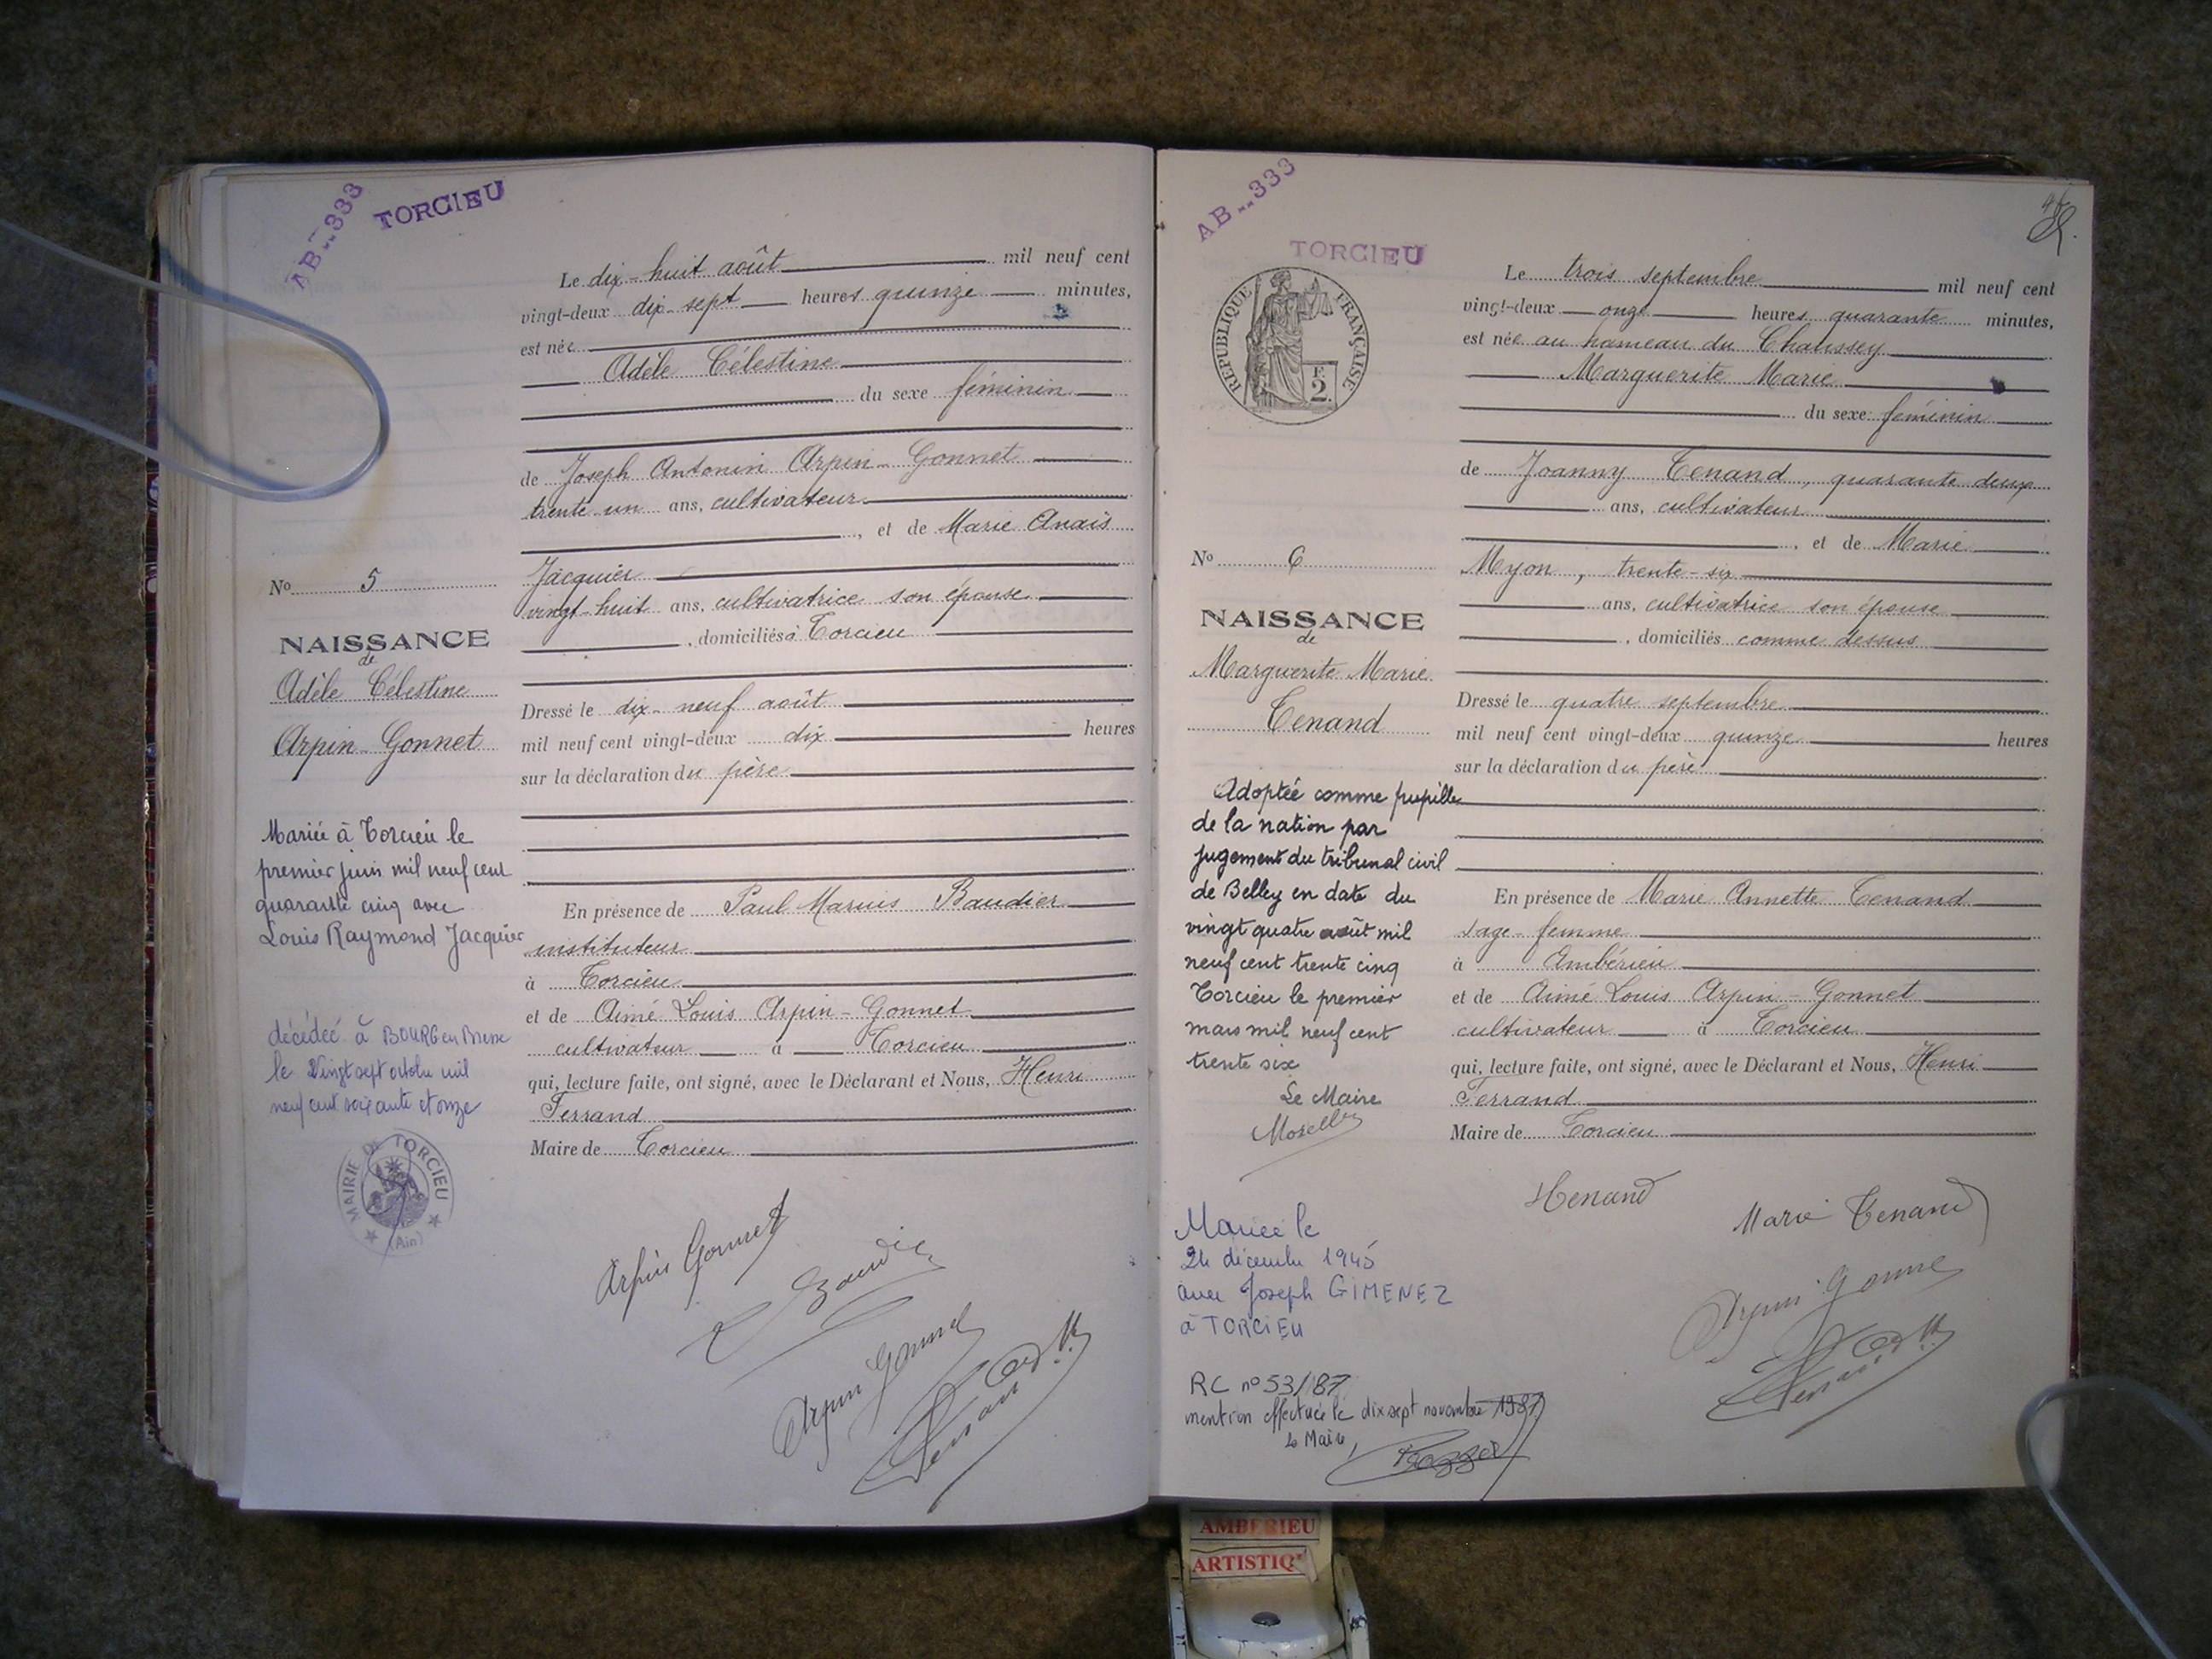 AB--333
TORCIEU
Le dix-huit août mil neuf cent
vingt-deux dix-sept heures quinze minutes,
est née
Adèle Célestine
du sexe féminin
de Joseph Antonin Arpin-Gonnet
trente un ans, cultivateur
, et de Marie Anaïs
Jacquier
vingt-huit ans, cultivatrice son épouse
, domiciliés à Torcieu
Dressé le dix-neuf août
mil neuf cent vingt-deux dix heures
sur la déclaration du père
En présence de Paul Marius Baudier
instituteur
à Torcieu
et de Aimé Louis Arpin-Gonnet
cultivateur à Torcieu
qui, lecture faite, ont signé, avec le Déclarant et Nous, Henri
Ferrand
Maire de Torcieu
No 5
NAISSANCE
de
Adèle Célestine
Arpin-Gonnet
Mariée à Torcieu le
premier juin mil neuf cent
quarante cinq avec
Louis Raymond Jacquier
décédée à BOURG en Bresse
le Vingt sept octobre mil
neuf cent soixante et onze
MAIRIE DE TORCIEU
(Ain)
Arpin Gonnet
Baudier
Arpin Gonnet
Ferrand
AB--333
TORCIEU
REPUBLIQUE FRANÇAISE
F.
2.
Le trois septembre mil neuf cent
vingt-deux onze heures quarante minutes,
est née au hameau du Chaussey
Marguerite Marie
du sexe féminin
de Joanny Tenand, quarante deux
ans, cultivateur
, et de Marie
Myon, trente-six
ans, cultivatrice son épouse
, domiciliés comme dessus
Dressé le quatre septembre
mil neuf cent vingt-deux quinze heures
sur la déclaration du père
En présence de Marie Annette Tenand
sage-femme
à Ambérieu
et de Aimé Louis Arpin-Gonnet
cultivateur à Torcieu
qui, lecture faite, ont signé, avec le Déclarant et Nous, Henri
Ferrand
Maire de Torcieu
No 6
NAISSANCE
de
Marguerite Marie
Tenand
Adoptée comme pupille
de la nation par
jugement du tribunal civil
de Belley en date du
vingt quatre août mil
neuf cent trente cinq
Torcieu le premier
mars mil neuf cent
trente six
Le Maire
Mariée le
24 décembre 1945
avec Joseph GIMENEZ
à TORCIEU
RC n° 53/87
mention effectuée le dix sept novembre 1987
Le Maire,
Tenand
Marie Tenand
Arpin Gonnet
Ferrand
AMBERIEU
ARTISTIQ